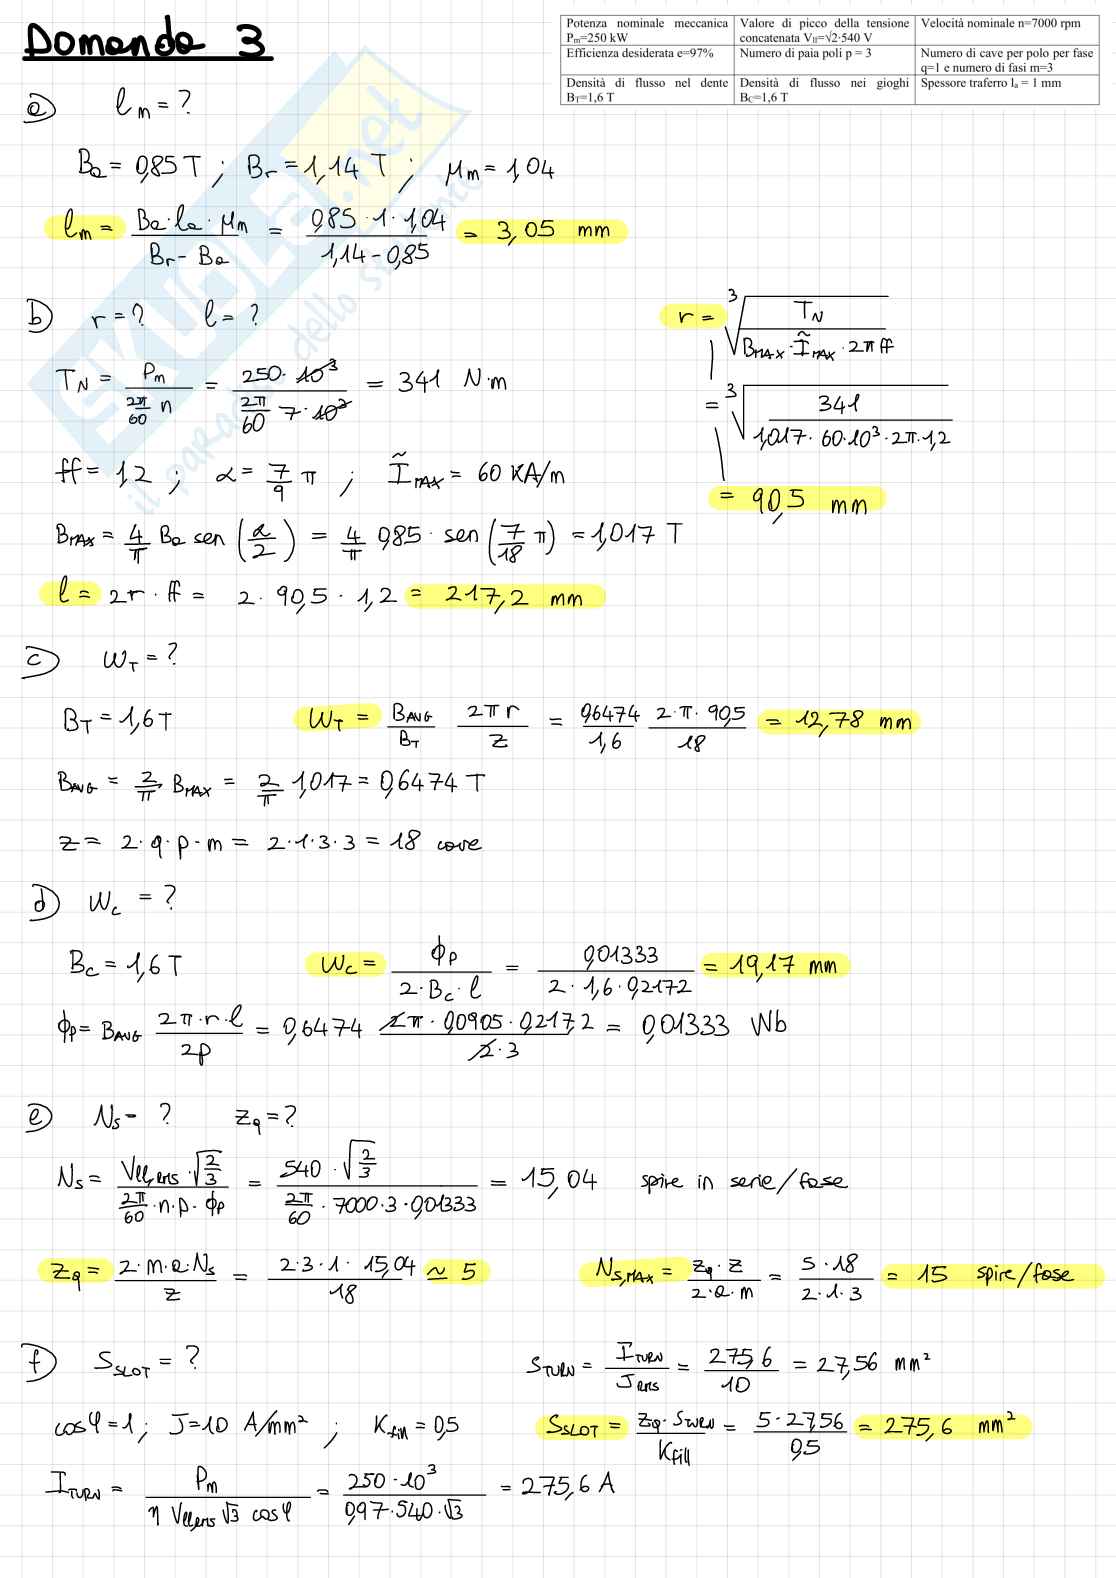 Domanda 3
Potenza nominale meccanica Pm=250 kW | Valore di picco della tensione concatenata Vll=√2·540 V | Velocità nominale n=7000 rpm
Efficienza desiderata e=97% | Numero di paia poli p = 3 | Numero di cave per polo per fase q=1 e numero di fasi m=3
Densità di flusso nel dente BT=1,6 T | Densità di flusso nei gioghi BC=1,6 T | Spessore traferro la = 1 mm
a) lm = ?
Ba = 0,85 T ; Br = 1,14 T ; μm = 1,04
lm = (Ba · la · μm)/(Br - Ba) = (0,85 · 1 · 1,04)/(1,14 - 0,85) = 3,05 mm
b) r = ? l = ?
r = ∛(TN/(BMAX · ĨMAX · 2π ff))
TN = Pm/((2π/60) n) = (250 · 10³)/((2π/60) 7 · 10³) = 341 N·m
= ∛(341/(1,017 · 60·10³ · 2π · 1,2))
ff = 1,2 ; α = 7/9 π ; ĨMAX = 60 KA/m
= 90,5 mm
BMAX = 4/π Ba sen (α/2) = 4/π 0,85 · sen (7/18 π) = 1,017 T
l = 2r · ff = 2 · 90,5 · 1,2 = 217,2 mm
c) WT = ?
BT = 1,6 T WT = BAVG/BT 2πr/z = 0,6474/1,6 (2·π·90,5)/18 = 12,78 mm
BAVG = 2/π BMAX = 2/π 1,017 = 0,6474 T
z = 2·q·p·m = 2·1·3·3 = 18 cave
d) Wc = ?
Bc = 1,6 T Wc = ϕp/(2·Bc·l) = 0,01333/(2 · 1,6 · 0,2172) = 19,17 mm
ϕp = BAVG (2π·r·l)/2p = 0,6474 (2π · 0,0905 · 0,2172)/(2·3) = 0,01333 Wb
e) Ns = ? zq = ?
Ns = (Vll,RMS · √(2/3))/((2π/60) · n·p·ϕp) = (540 · √(2/3))/((2π/60) · 7000·3·0,01333) = 15,04 spire in serie/fase
zq = (2·m·a·Ns)/z = (2·3·1·15,04)/18 ≃ 5 Ns,MAX = (zq·z)/(2·a·m) = (5·18)/(2·1·3) = 15 spire/fase
f) SSLOT = ? STURN = ITURN/JRMS = 275,6/10 = 27,56 mm²
cosφ = 1 ; J = 10 A/mm² ; Kfill = 0,5 SSLOT = (zq · STURN)/Kfill = (5·27,56)/0,5 = 275,6 mm²
ITURN = Pm/(η Vll,RMS √3 cosφ) = (250·10³)/(0,97·540·√3) = 275,6 A
SKUOLA.net
il paradiso dello studente